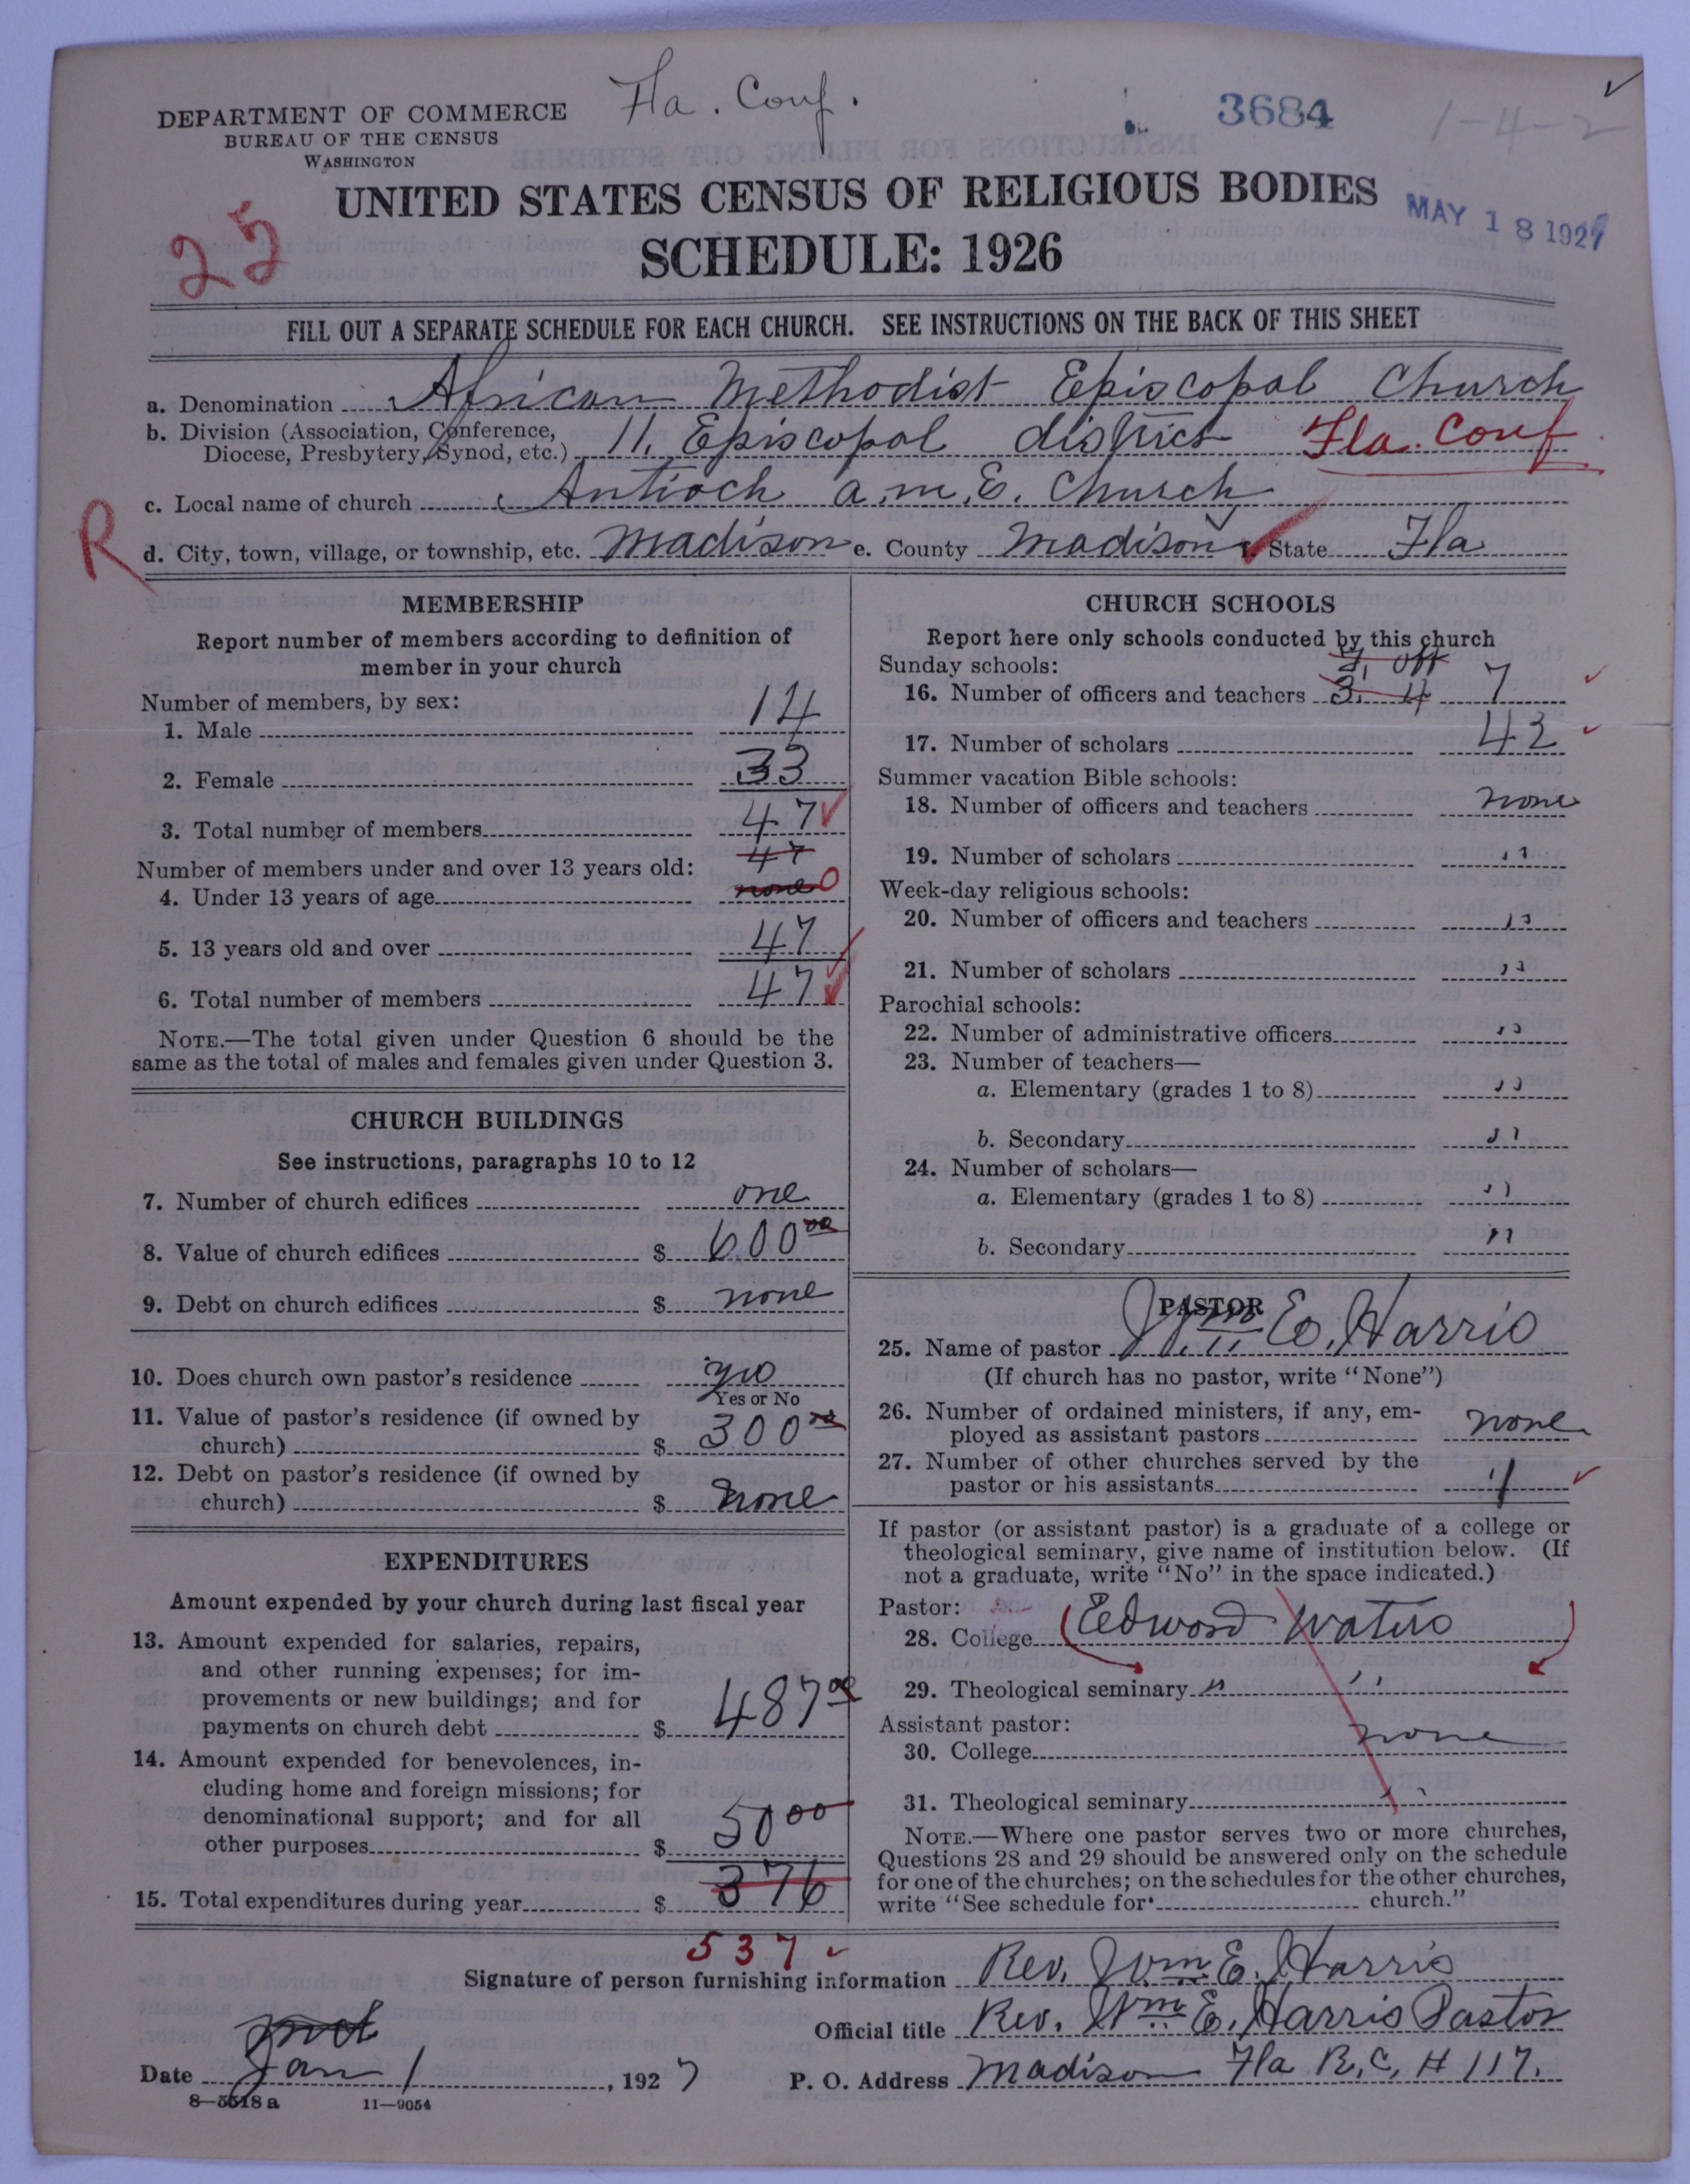 Fla. Conf.
3684
1-4-2
DEPARTMENT OF COMMERCE
BUREAU OF THE CENSUS
WASHINGTON
UNITED STATES CENSUS OF RELIGIOUS BODIES
MAY 18 1927
25
SCHEDULE: 1926
FILL OUT A SEPARATE SCHEDULE FOR EACH CHURCH. SEE INSTRUCTIONS ON THE BACK OF THIS SHEET
a. Denomination African Methodist Episcopal Church
b. Division (Association, Conference,
Diocese, Presbytery, Synod, etc.) 11. Episcopal district Fla. Conf.
c. Local name of church Antioch a.m.E. Church
R
d. City, town, village, or township, etc. Madison e. County Madison f. State Fla
MEMBERSHIP
Report number of members according to definition of
member in your church
Number of members, by sex:
1. Male 14
2. Female 33
3. Total number of members 47
47
Number of members under and over 13 years old:
4. Under 13 years of age none 0
5. 13 years old and over 47
6. Total number of members 47
NOTE.—The total given under Question 6 should be the
same as the total of males and females given under Question 3.
CHURCH BUILDINGS
See instructions, paragraphs 10 to 12
7. Number of church edifices one
8. Value of church edifices $ 600 00
9. Debt on church edifices $ none
10. Does church own pastor's residence
Yes or No
11. Value of pastor's residence (if owned by
church) $ 300 00
12. Debt on pastor's residence (if owned by
church) $ none
EXPENDITURES
Amount expended by your church during last fiscal year
13. Amount expended for salaries, repairs,
and other running expenses; for im-
provements or new buildings; and for
payments on church debt $ 487 00
14. Amount expended for benevolences, in-
cluding home and foreign missions; for
denominational support; and for all
other purposes $ 50 00
15. Total expenditures during year $ 376
537
CHURCH SCHOOLS
Report here only schools conducted by this church
Sunday schools:
16. Number of officers and teachers 3, 4 7
17. Number of scholars 42
Summer vacation Bible schools:
18. Number of officers and teachers none
19. Number of scholars "
Week-day religious schools:
20. Number of officers and teachers "
21. Number of scholars "
Parochial schools:
22. Number of administrative officers "
23. Number of teachers—
a. Elementary (grades 1 to 8) "
b. Secondary "
24. Number of scholars—
a. Elementary (grades 1 to 8) "
b. Secondary "
PASTOR
25. Name of pastor Wm. E. Harris
(If church has no pastor, write "None")
26. Number of ordained ministers, if any, em-
ployed as assistant pastors none
27. Number of other churches served by the
pastor or his assistants 1
If pastor (or assistant pastor) is a graduate of a college or
theological seminary, give name of institution below. (If
not a graduate, write "No" in the space indicated.)
Pastor:
28. College Edword Waters
29. Theological seminary " "
Assistant pastor:
30. College none
31. Theological seminary
NOTE.—Where one pastor serves two or more churches,
Questions 28 and 29 should be answered only on the schedule
for one of the churches; on the schedules for the other churches,
write "See schedule for church."
Signature of person furnishing information Rev. Wm E. Harris
Official title Rev. Wm E. Harris Pastor
Date Jan 1, 1927
P. O. Address Madison Fla R.C, # 117.
8—5518 a 11—9054